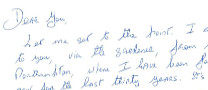 Dear Jon,
Let me get to the point. I a
to you, via the gardener, from
Southampton, where I have been
now for the last thirty years.